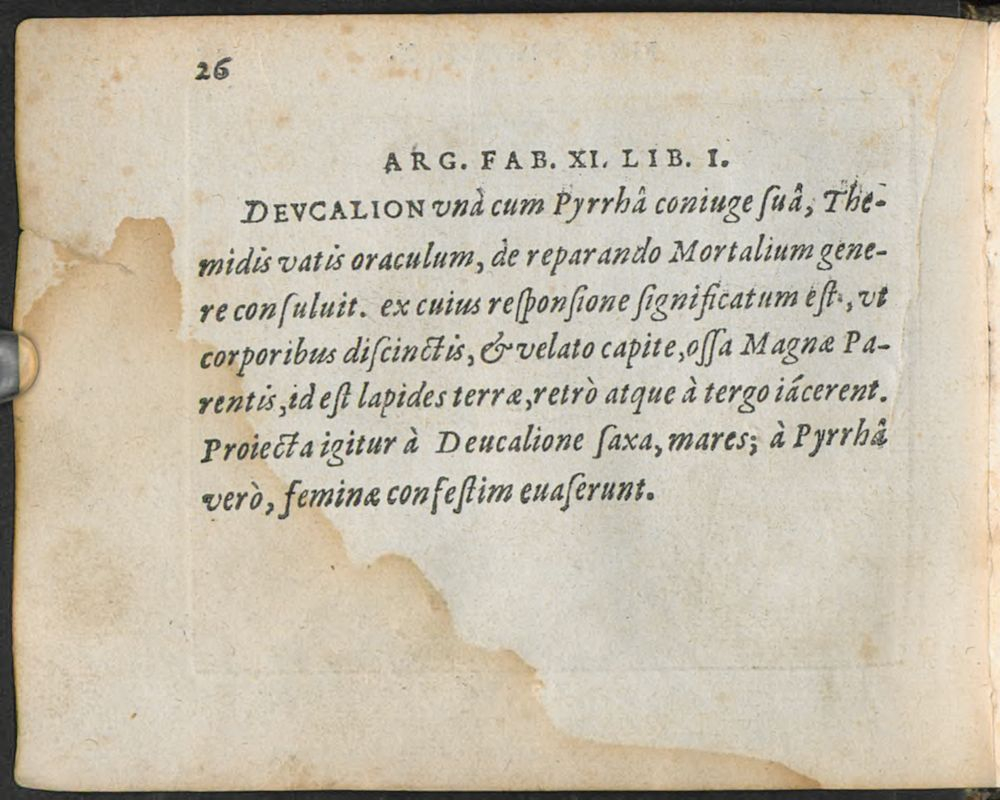 26
ARG. FAB. XI. LIB. I.
DEVCALION vnà cum Pyrrhâ coniuge ſuâ, The-
midis vatis oraculum, de reparando Mortalium gene-
re conſuluit. ex cuius reſponſione ſignificatum eſt, vt
corporibus diſcinctis, & velato capite, oſſa Magnæ Pa-
rentis, id eſt lapides terræ, retrò atque à tergo iácerent.
Proiecta igitur à Deucalione ſaxa, mares; à Pyrrhâ
verò, feminæ confeſtim euaſerunt.